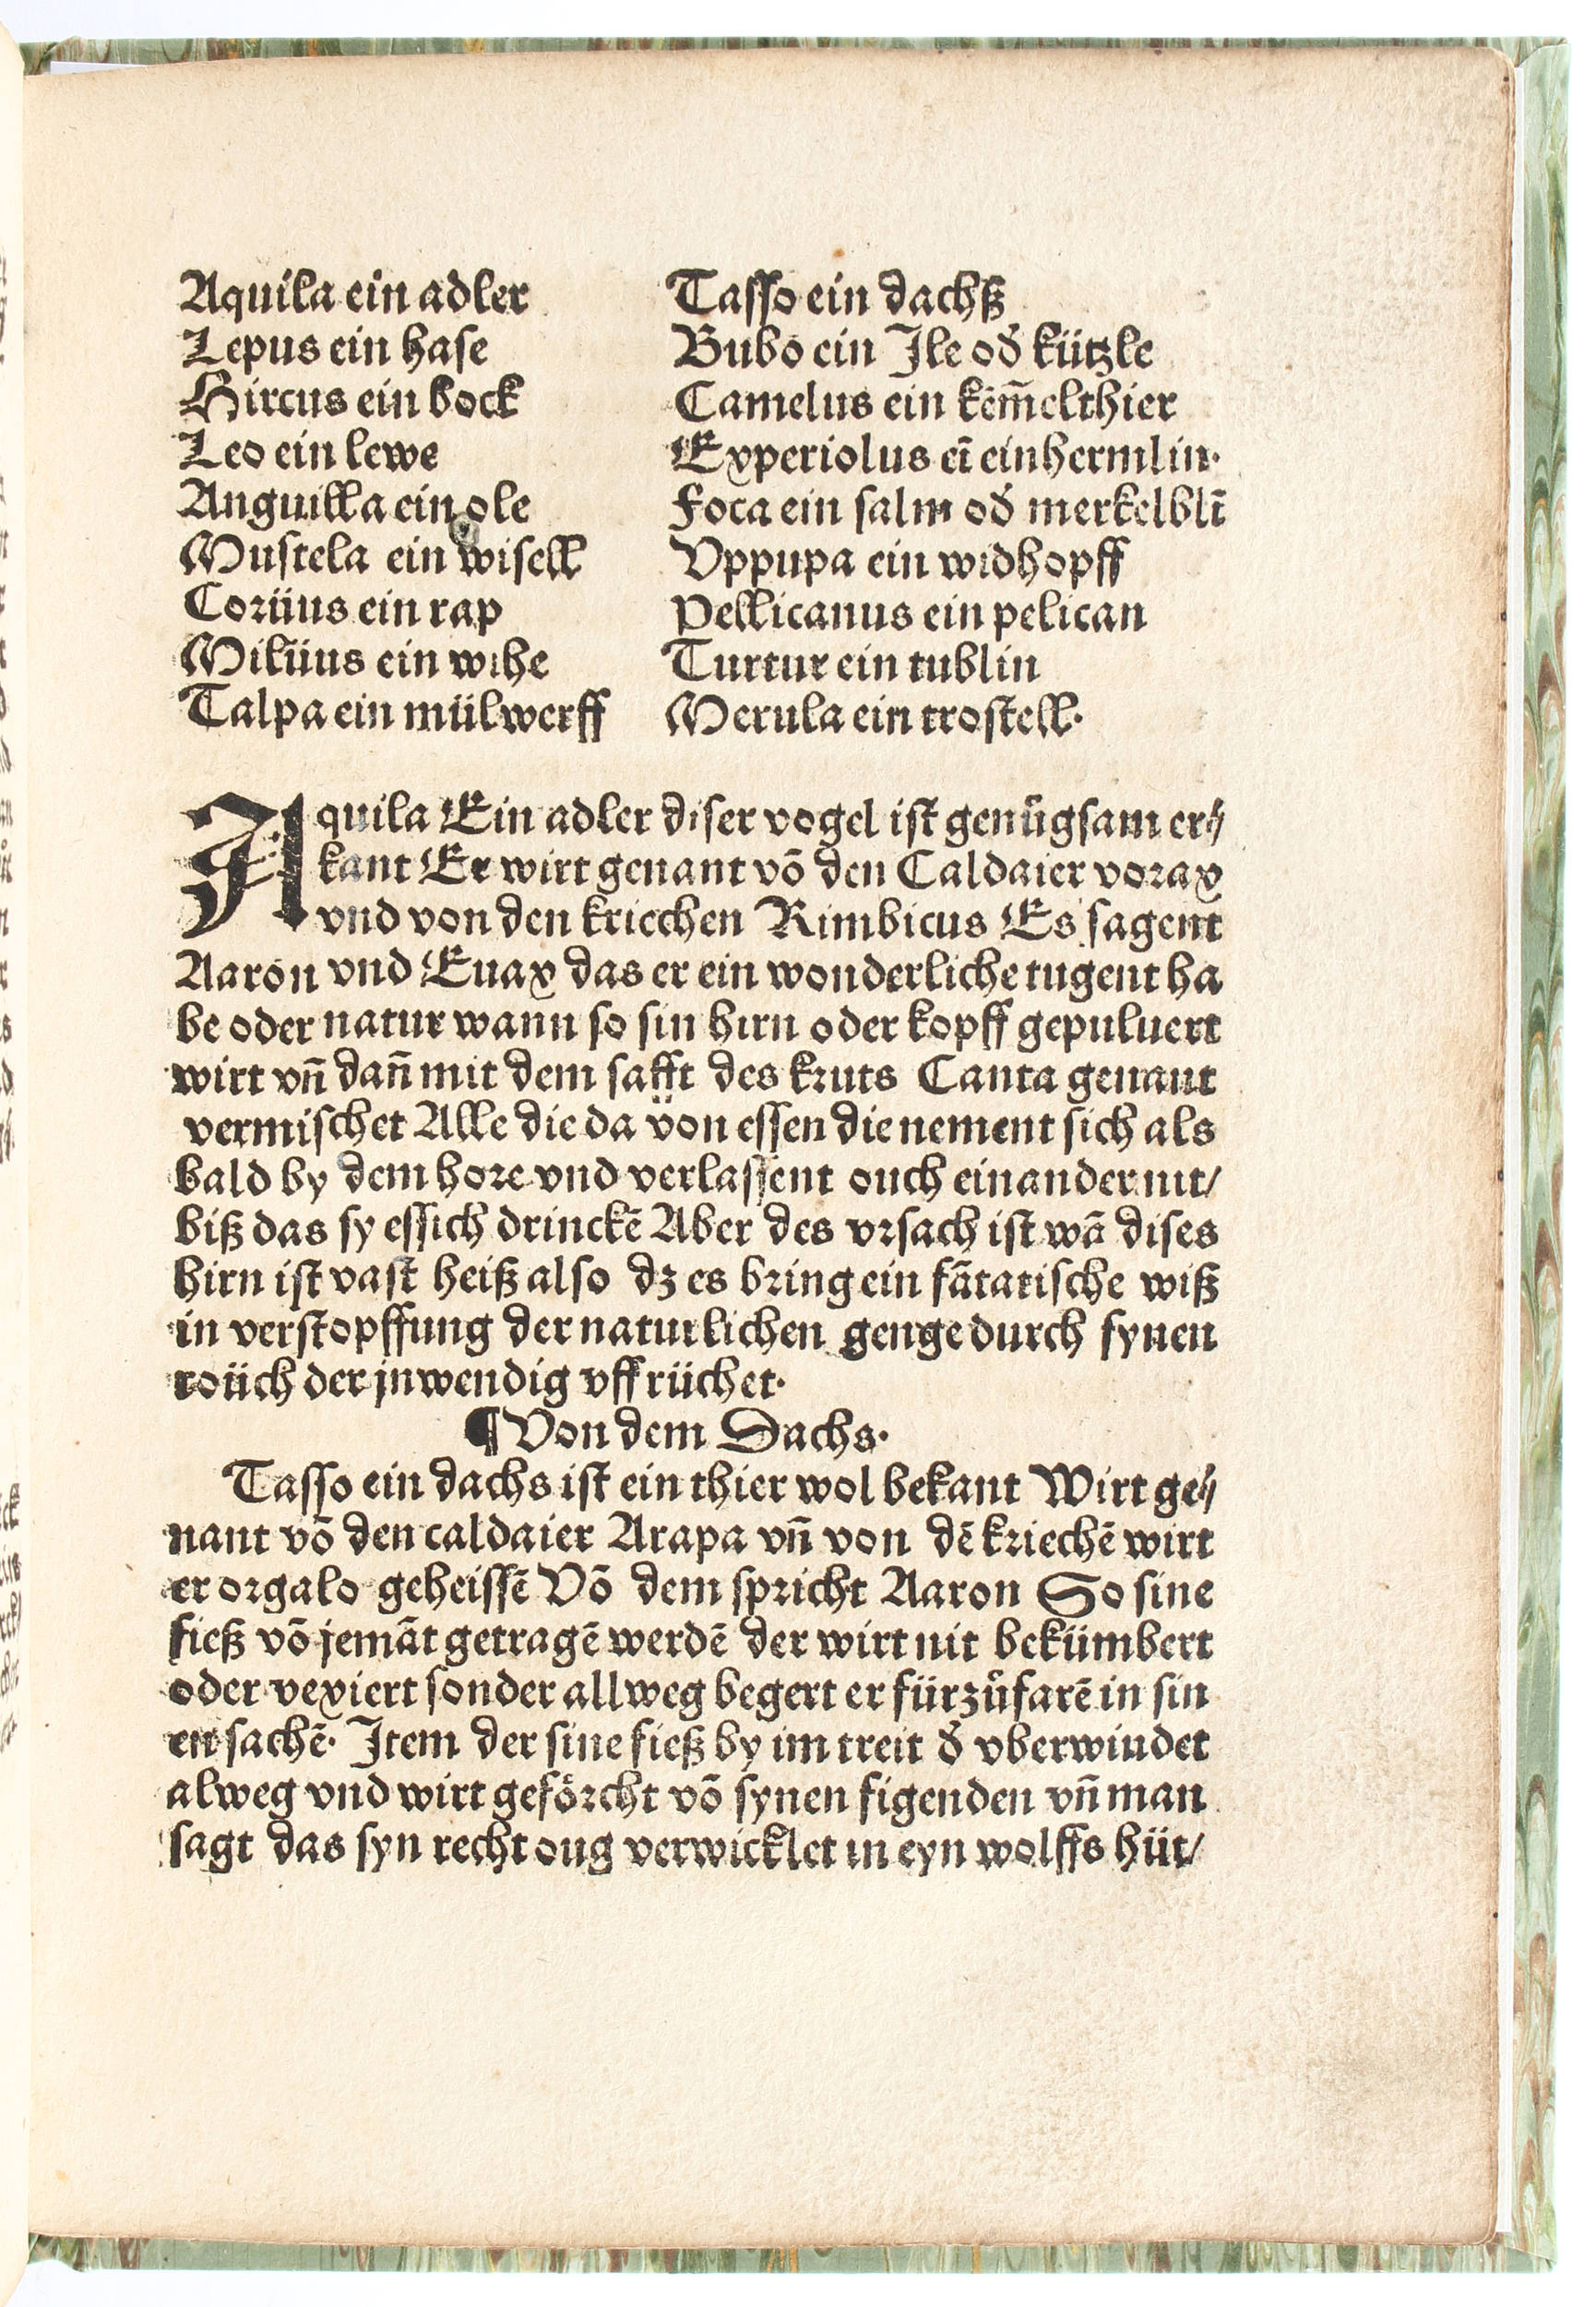 Aquila ein adler
Lepus ein hase
Hircus ein bock
Leo ein lewe
Anguilla ein ole
Mustela ein wisell
Corüus ein rap
Milüus ein wihe
Talpa ein mülwerff
Tasso ein dachß
Bubo ein Jle od̕ kützle
Camelus ein kēm̄elthier
Experiolus eī einhermlin·
Foca ein salm od̕ merkelblī
Vppupa ein widhopff
Pellicanus ein pelican
Turtur ein tublin
Merula ein trostell·
Aquila Ein adler diser vogel ist genůgsam er⸗
kant Er wirt genant vō den Caldaier vorax
vnd von den kriechen Rimbicus Es sagent
Aaron vnd Euax das er ein wonderliche tugent ha
be oder natur wann so sin hirn oder kopff gepuluert
wirt vn̄ dan̄ mit dem safft des kruts Canta genant
vermischet Alle die da von essen die nement sich als
bald by dem hore vnd verlassent ouch einander nit/
biß das sy essich drinckē Aber des vrsach ist wā dises
hirn ist vast heiß also dz es bring ein fātatische wiß
in verstopffung der naturlichen genge durch synen
roüch der jnwendig vff rüchet·
¶ Von dem Dachs·
Tasso ein dachs ist ein thier wol bekant Wirt ge⸗
nant vō den caldaier Arapa vn̄ von dē kriechē wirt
er orgalo geheissē Vō dem spricht Aaron So sine
fieß vō jemāt getragē werdē der wirt nit bekümbert
oder vexiert sonder allweg begert er fürzůfarē in sin
en sachē· Jtem der sine fieß by im treit d̕ vberwindet
alweg vnd wirt gefoͤrcht vō synen figenden vn̄ man
sagt das syn recht oug verwicklet in eyn wolffs hüt/